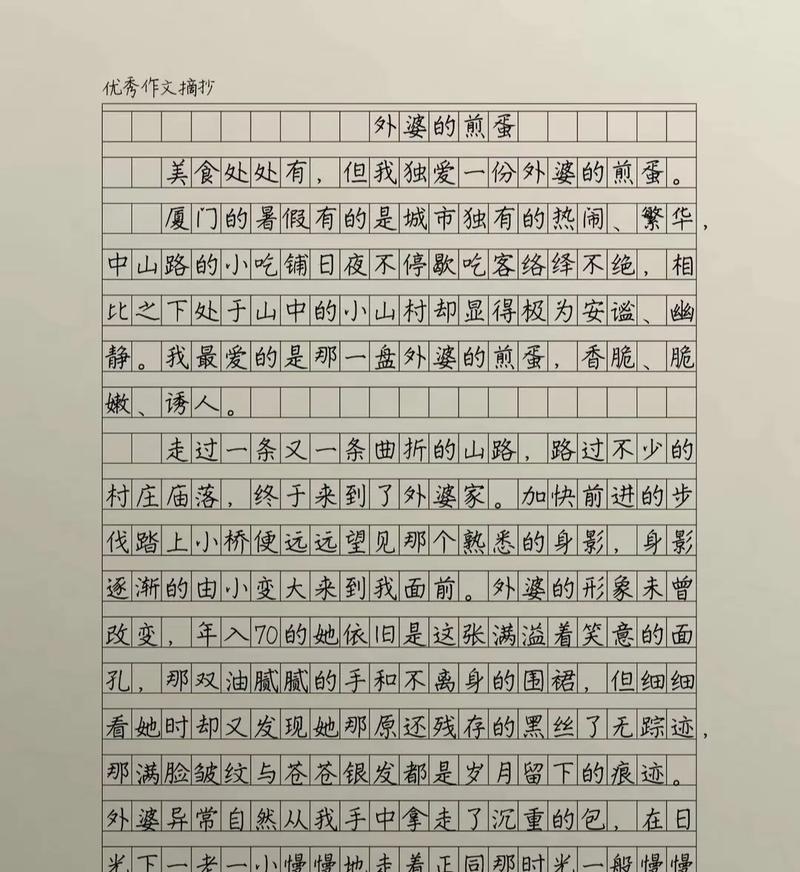 优秀作文摘抄
外婆的煎蛋
美食处处有，但我独爱一份外婆的煎蛋。
厦门的暑假有的是城市独有的热闹、繁华，
中山路的小吃铺日夜不停歇吃客络绎不绝，相
比之下处于山中的小山村却显得极为安谧、幽
静。我最爱的是那一盘外婆的煎蛋，香脆、脆
嫩、诱人。
走过一条又一条曲折的山路，路过不少的
村庄庙落，终于来到了外婆家。加快前进的步
伐踏上小桥便远远望见那个熟悉的身影，身影
逐渐的由小变大来到我面前。外婆的形象未曾
改变，年入70的她依旧是这张满溢着笑意的面
孔，那双油腻腻的手和不离身的围裙，但细细
看她时却又发现她那原还残存的黑丝了无踪迹，
那满脸皱纹与苍苍银发都是岁月留下的痕迹。
外婆异常自然从我手中拿走了沉重的包，在日
光下一老一小慢慢地走着正同那时光一般慢慢